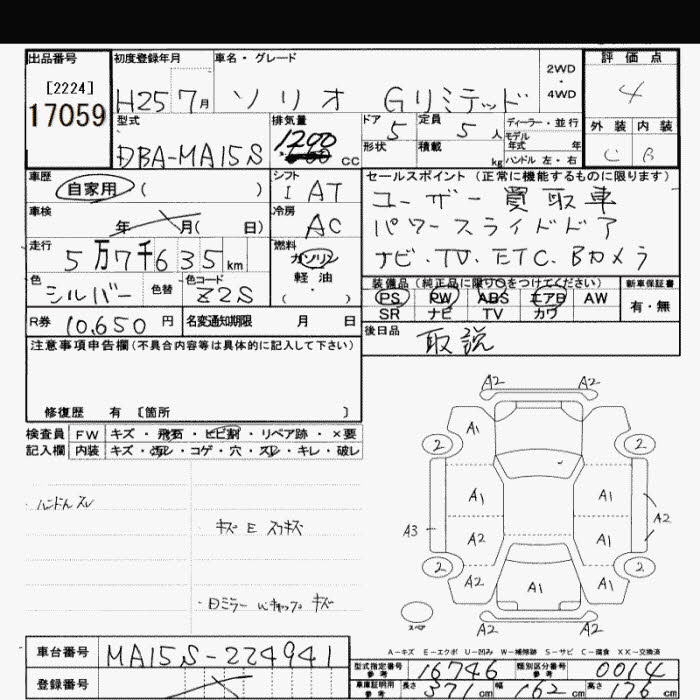 出品番号 初度登録年月 車名・グレード 2WD・4WD 評価点
[2224]
17059 H25 7月 ソリオ Gリミテッド 4
型式 排気量 ドア 5 定員 5人 ディーラー・並行 外装 内装
DBA-MA15S 1200 cc 形状 積載 kg モデル年式 年 C B
ハンドル 左・右
車歴 自家用 ( ) シフト I AT セールスポイント (正常に機能するものに限ります)
車検 年 月( 日) 冷房 AC ユーザー買取車
パワースライドドア
走行 5万7千635km 燃料 ガソリン 軽油 ( ) ナビ.TV.ETC.Bカメラ
色 シルバー 色替 色コード Z2S 装備品 (純正品に限り○をつけてください) 新車保証書
PS PW ABS エアB AW 有・無
SR ナビ TV カワ
R券 10,650円 名変通知期限 月 日 後日品 取説
注意事項申告欄(不具合内容等は具体的に記入して下さい)
修復歴 有 〔箇所 〕
検査員 FW キズ・飛石・ヒビ割・リペア跡・×要
記入欄 内装 キズ・汚レ・コゲ・穴・スレ・キレ・破レ
ハンドルスレ
キズ E スリキズ
A2 A2
A1
2 2
A1 A1
A3 A2 A1 A2
2 2
A2 A1 A1
A2 A2
スペア
A-キズ E-エクボ U-凹み W-補修跡 S-サビ C-腐食 XX-交換済
車台番号 MA15S-224941
型式指定番号 参考 16746 類別区分番号 参考 0014
登録番号
車庫証明用 参考 長さ 371cm 幅 162cm 高さ 176cm